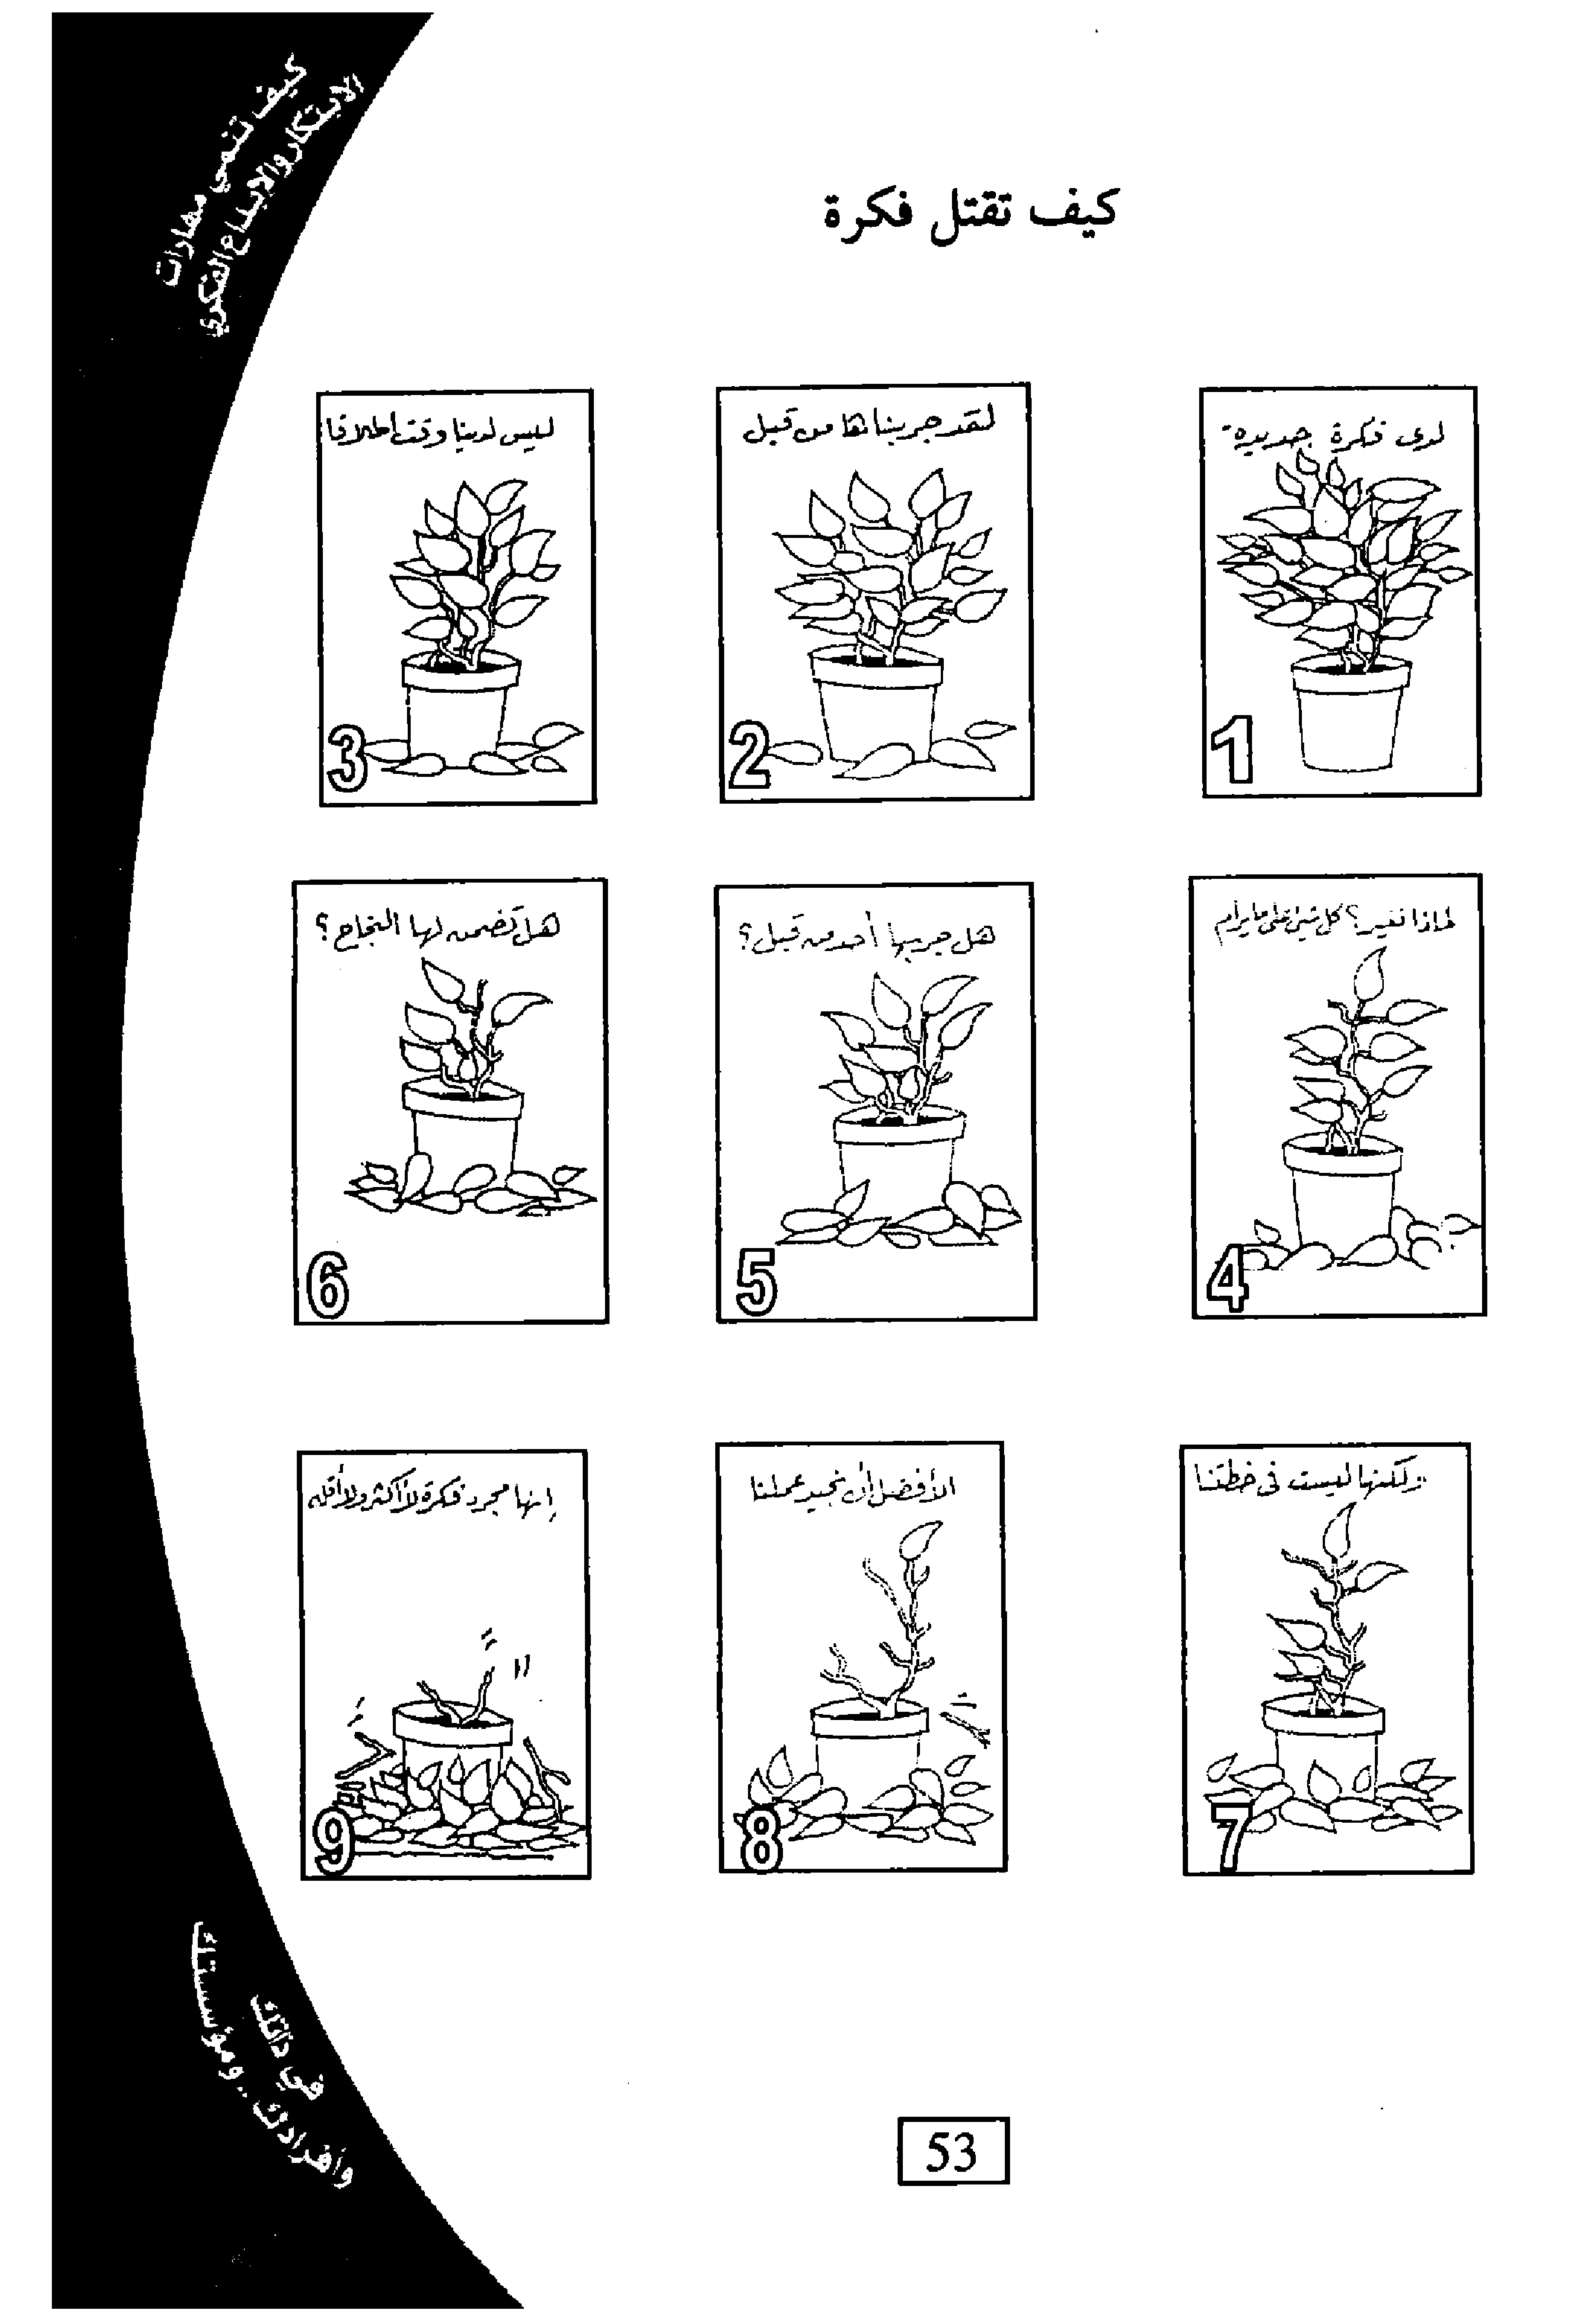 كيف تنمي مهارات
الابتكار والابداع الفكري
كيف تقتل فكرة
لدى فكرة جديدة
1
لقد جربناها من قبل
2
ليس لدينا وقت إطلاقا
3
لماذا نغير؟ كل شئ على ما يرام
4
هل جربها أحد من قبل؟
5
هل تضمن لها النجاح؟
6
ولكنها ليست فى خطتنا
7
الأفضل أن نجيد عملنا
8
إنها مجرد فكرة لا أكثر ولا أقل
9
في ذاتك
وأفرادك .. ومؤسستك
53